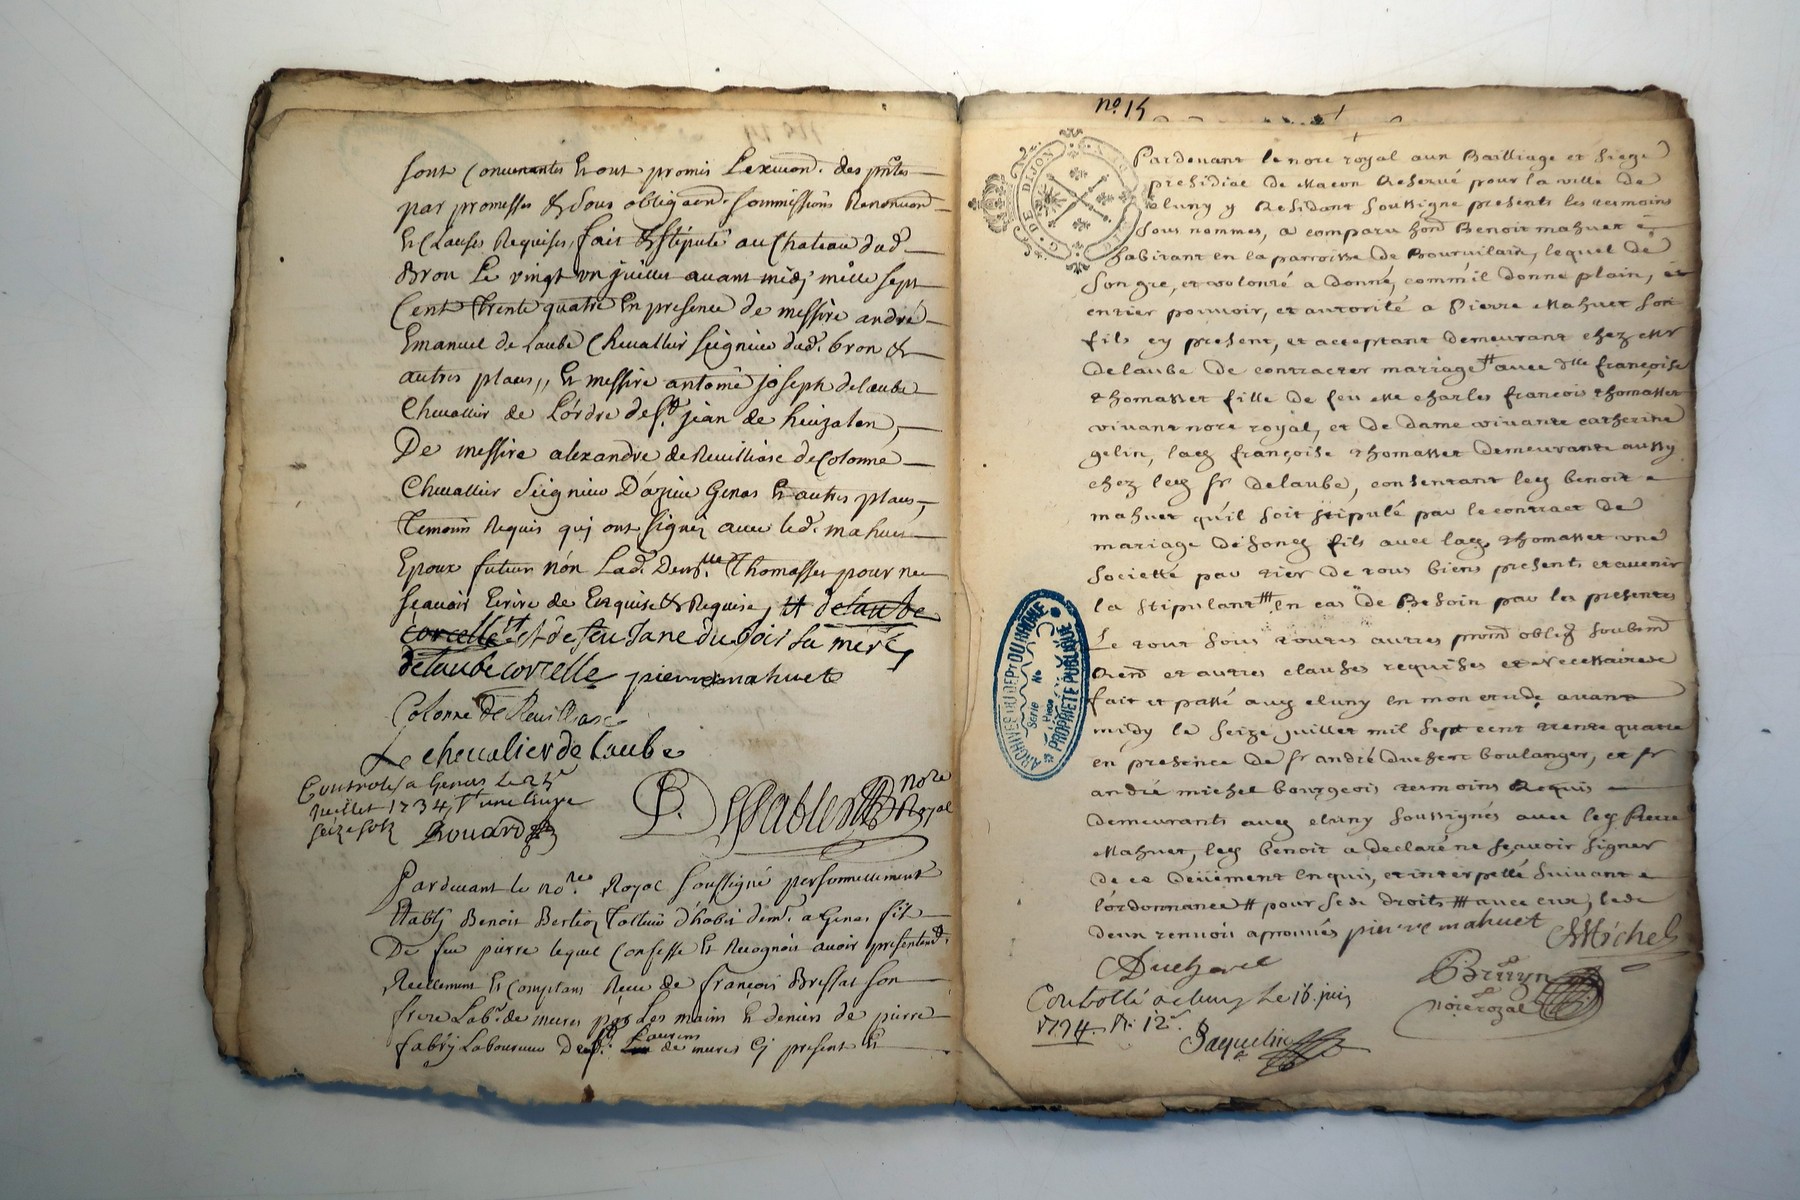 sont convenantes et ont promis l'exuion. des pntes
par promesses & sous obligaon. sommissions Renonciaons
et Clauses Requises, fait & stipulé au Chateau dud.
Bron Le vingt un juillet avant midy mille sept
Cent trente quatre En presence de messire andré
Emanuel de Laube Chevallier seignieur dud. bron &
autres places,, Et messire antoine joseph delaube
Chevallier de L'ordre de St. jean de hieruzalem,
De messire alexandre de Reuilliasc de Colonne
Chevallier Seignieur D'azieu Genas Et autres places,
temoins Requis qui ont signez avec led. mahuet
Epoux futur non Lad. Demlle. Thomasset pour ne
sçavoir Ecrire de Enquise & Requise, # delaube
corcelle # et de feu Jane du bois sa mere
delaube corcelle pierre mahuet
Colonne de Reuilliasc
Le chevalier de Laube
Controlé a Genas Le 25e
Juillet 1734 une livre
seize sols Rouard
Dessables nore
Royal
Pardevant le nore. Royal soussigné personnellement
Etably Benoit Bertier tallieur d'habit demt. a Genas fils
De feu pierre lequel Confesse Et Recognoit avoir presentemt.
Reellement Et Comptant Reçu de françois Brissat son
frere Labr. de mures par Les mains Et deniers de pierre
fabry Laboureur De St. Laurens de mures cy present Et
no. 15
G. DE DIJON
Pardevant le nore royal aux Bailliage et siege
presidial de Macon Reservé pour la ville de
Cluny y Residant soussigné presents les temoins
sous nommes, a comparu hond Benoit mahuet
habitant en la parroisse de Bourvilain, lequel de
son gré, et volonté a donné, comm'il donne plain, et
entier pouvoir, et autorité a Pierre Mahuet son
fils cy present, et acceptant demeurant chez Mr
Delaube de contracter mariage # avec dlle françoise
thomasset fille de feu Me charles francois thomasset
vivant nore royal, et de dame vivante catherine
gelin, lad françoise thomasset demeurante aussy
chez led sr delaube, consentant led benoit
mahuet qu'il soit stipulé par le contract de
mariage de sond fils avec lad thomasset une
societté par tier de tous biens present et avenir
la stipulant ## en cas de Besoin par les presentes
Le tout sous toutes autres promd oblig soubmd
Rend et autres clauses requises et necessaires
fait et passé aud cluny en mon etude avant
midy le seize juillet mil sept cent trente quatre
en presence de sr andré Duchert boulanger, et sr
andré michel bourgeois temoins Requis
demeurants aud cluny soussignés avec led Pierre
Mahuet, led benoit a declaré ne sçavoir signer
de ce Deüement Enquis, et interpellé suivant
l'ordonnance # pour ses droits ## avec eux, lesd
deux renvois aprouvés pierre mahuet Michel
Bruyn
nore royal
Controllé a Cluny Le 16. juin
1734. R. 12s.
Jaquelin
ARCHIVES DU DEPT DU RHÔNE
Serie
No
Piece
PROPRIETE PUBLIQUE